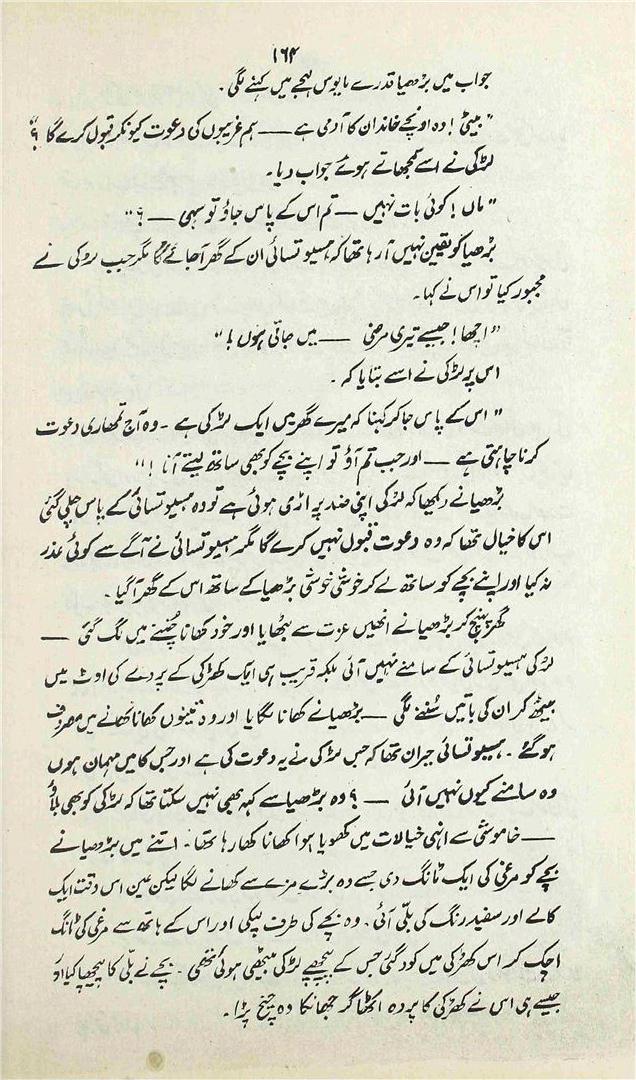 ۱۶۴
جواب میں بڑھیا قدرے مایوس لہجے میں کہنے لگی۔
"بیٹی! وہ اونچے خاندان کا آدمی ہے — ہم غریبوں کی دعوت کیونکر قبول کرے گا؟"
لڑکی نے اسے سمجھاتے ہوئے جواب دیا۔
"ماں! کوئی بات نہیں — تم اس کے پاس جاؤ تو سہی — ؟"
بڑھیا کو یقین نہیں آ رہا تھا کہ ہسیو تسائی ان کے گھر آ جائے گا مگر جب لڑکی نے
مجبور کیا تو اس نے کہا۔
"اچھا! جیسے تیری مرضی — میں جاتی ہوں!"
اس پر لڑکی نے اسے بتایا کہ۔
"اس کے پاس جا کر کہنا کہ میرے گھر میں ایک لڑکی ہے۔ وہ آج تمھاری دعوت
کرنا چاہتی ہے — اور جب تم آؤ تو اپنے بچے کو بھی ساتھ لیتے آنا!"
بڑھیا نے دیکھا کہ لڑکی اپنی ضد پر اڑی ہوئی ہے تو وہ ہسیو تسائی کے پاس چلی گئی
اس کا خیال تھا کہ وہ دعوت قبول نہیں کرے گا مگر ہسیو تسائی نے آگے سے کوئی عذر
نہ کیا اور اپنے بچے کو ساتھ لے کر خوشی خوشی بڑھیا کے ساتھ اس کے گھر آ گیا۔
گھر پہنچ کر بڑھیا نے انھیں عزت سے بٹھایا اور خود کھانا چُننے میں لگ گئی —
لڑکی ہسیو تسائی کے سامنے نہیں آئی بلکہ قریب ہی ایک کھڑکی کے پردے کی اوٹ میں
بیٹھ کر ان کی باتیں سُننے لگی — بڑھیا نے کھانا لگایا اور وہ تینوں کھانا کھانے میں مصروف
ہو گئے۔ ہسیو تسائی حیران تھا کہ جس لڑکی نے یہ دعوت کی ہے اور جس کا میں مہمان ہوں
وہ سامنے کیوں نہیں آئی — ؟ وہ بڑھیا سے کہہ بھی نہیں سکتا تھا کہ لڑکی کو بھی بلاؤ
— خاموشی سے انہی خیالات میں کھویا ہوا کھانا کھا رہا تھا۔ اتنے میں بڑھیا نے
بچے کو مرغی کی ایک ٹانگ دی جسے وہ بڑے مزے سے کھانے لگا لیکن عین اس وقت ایک
کالے اور سفید رنگ کی بلّی آئی۔ وہ بچے کی طرف لپکی اور اس کے ہاتھ سے مرغی کی ٹانگ
اچک کر اس کھڑکی میں کود گئی جس کے پیچھے لڑکی بیٹھی ہوئی تھی۔ بچے نے بلّی کا پیچھا کیا اور
جیسے ہی اس نے کھڑکی کا پردہ اٹھا کر جھانکا وہ چیخ پڑا۔